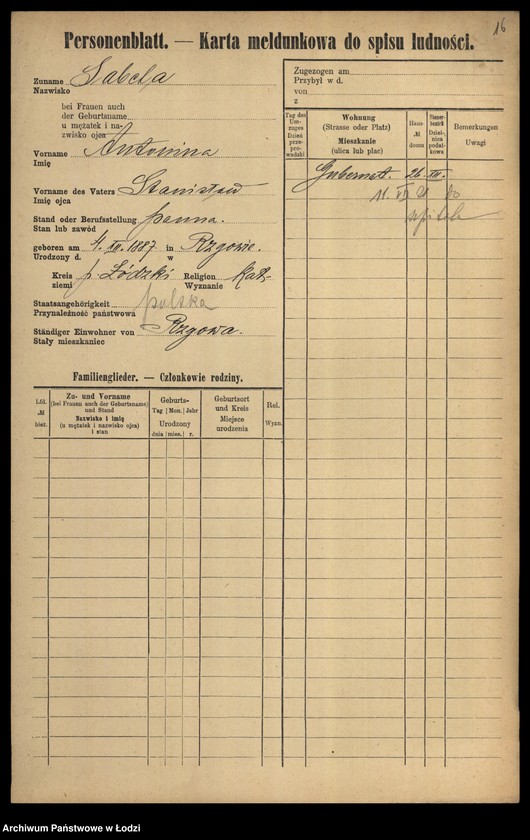 16
Personenblatt. — Karta meldunkowa do spisu ludności.
Zuname
Nazwisko
Sabela
bei Frauen auch
der Geburtsname
u mężatek i na-
zwisko ojca
Vorname
Imię
Antonina
Vorname des Vaters
Imię ojca
Stanisław
Stand oder Berufsstellung
Stan lub zawód
panna.
geboren am 4/. XII. 1887 in Rzgowie.
Urodzony d. w
Kreis p. Łódzki Religion Kat.
ziemi Wyznanie
Staatsangehörigkeit
Przynależność państwowa
polska
Ständiger Einwohner von
Stały mieszkaniec
Rzgowa.
Familienglieder. — Członkowie rodziny.
Lfd.
№
bież.
Zu- und Vorname
(bei Frauen auch der Geburtsname)
und Stand
Nazwisko i imię
(u mężatek i nazwisko ojca)
i stan
Geburts-
Tag | Mon. | Jahr
Urodzony
dnia | mies. | r.
Geburtsort
und Kreis
Miejsce
urodzenia
Rel.
Wyzn.
Zugezogen am
Przybył w d.
von
z
Tag des
Um-
zuges
Dzień
prze-
prowa-
dzki
Wohnung
(Strasse oder Platz)
Mieszkanie
(ulica lub plac)
Haus-
№
domu
Steuer-
bezirk
Dziel-
nica
podat-
kowa
Bemerkungen
Uwagi
Gubernat. 26. XII.
11. VII 21 do
szpitala
Archiwum Państwowe w Łodzi